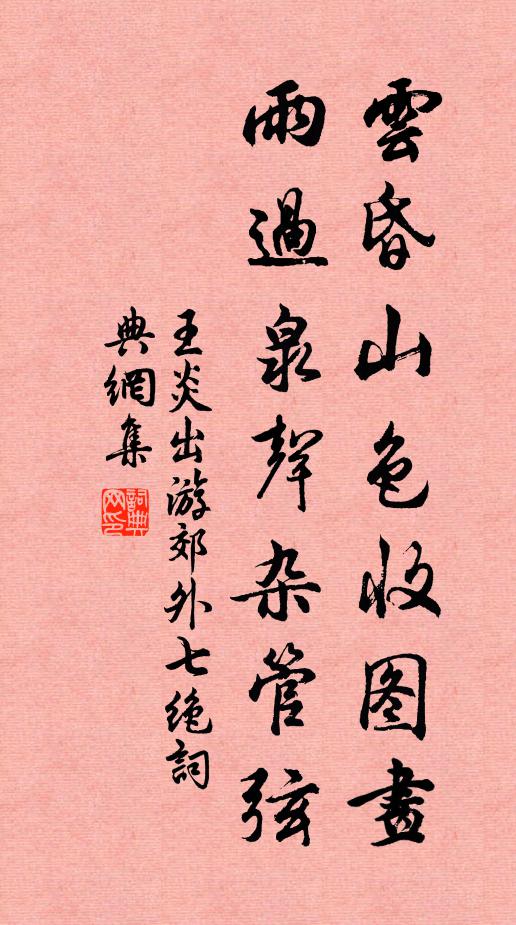 雲昏山色收图畫
雨過泉聲杂管弦
王炎出游郊外七绝詞
典網集
詞典网印